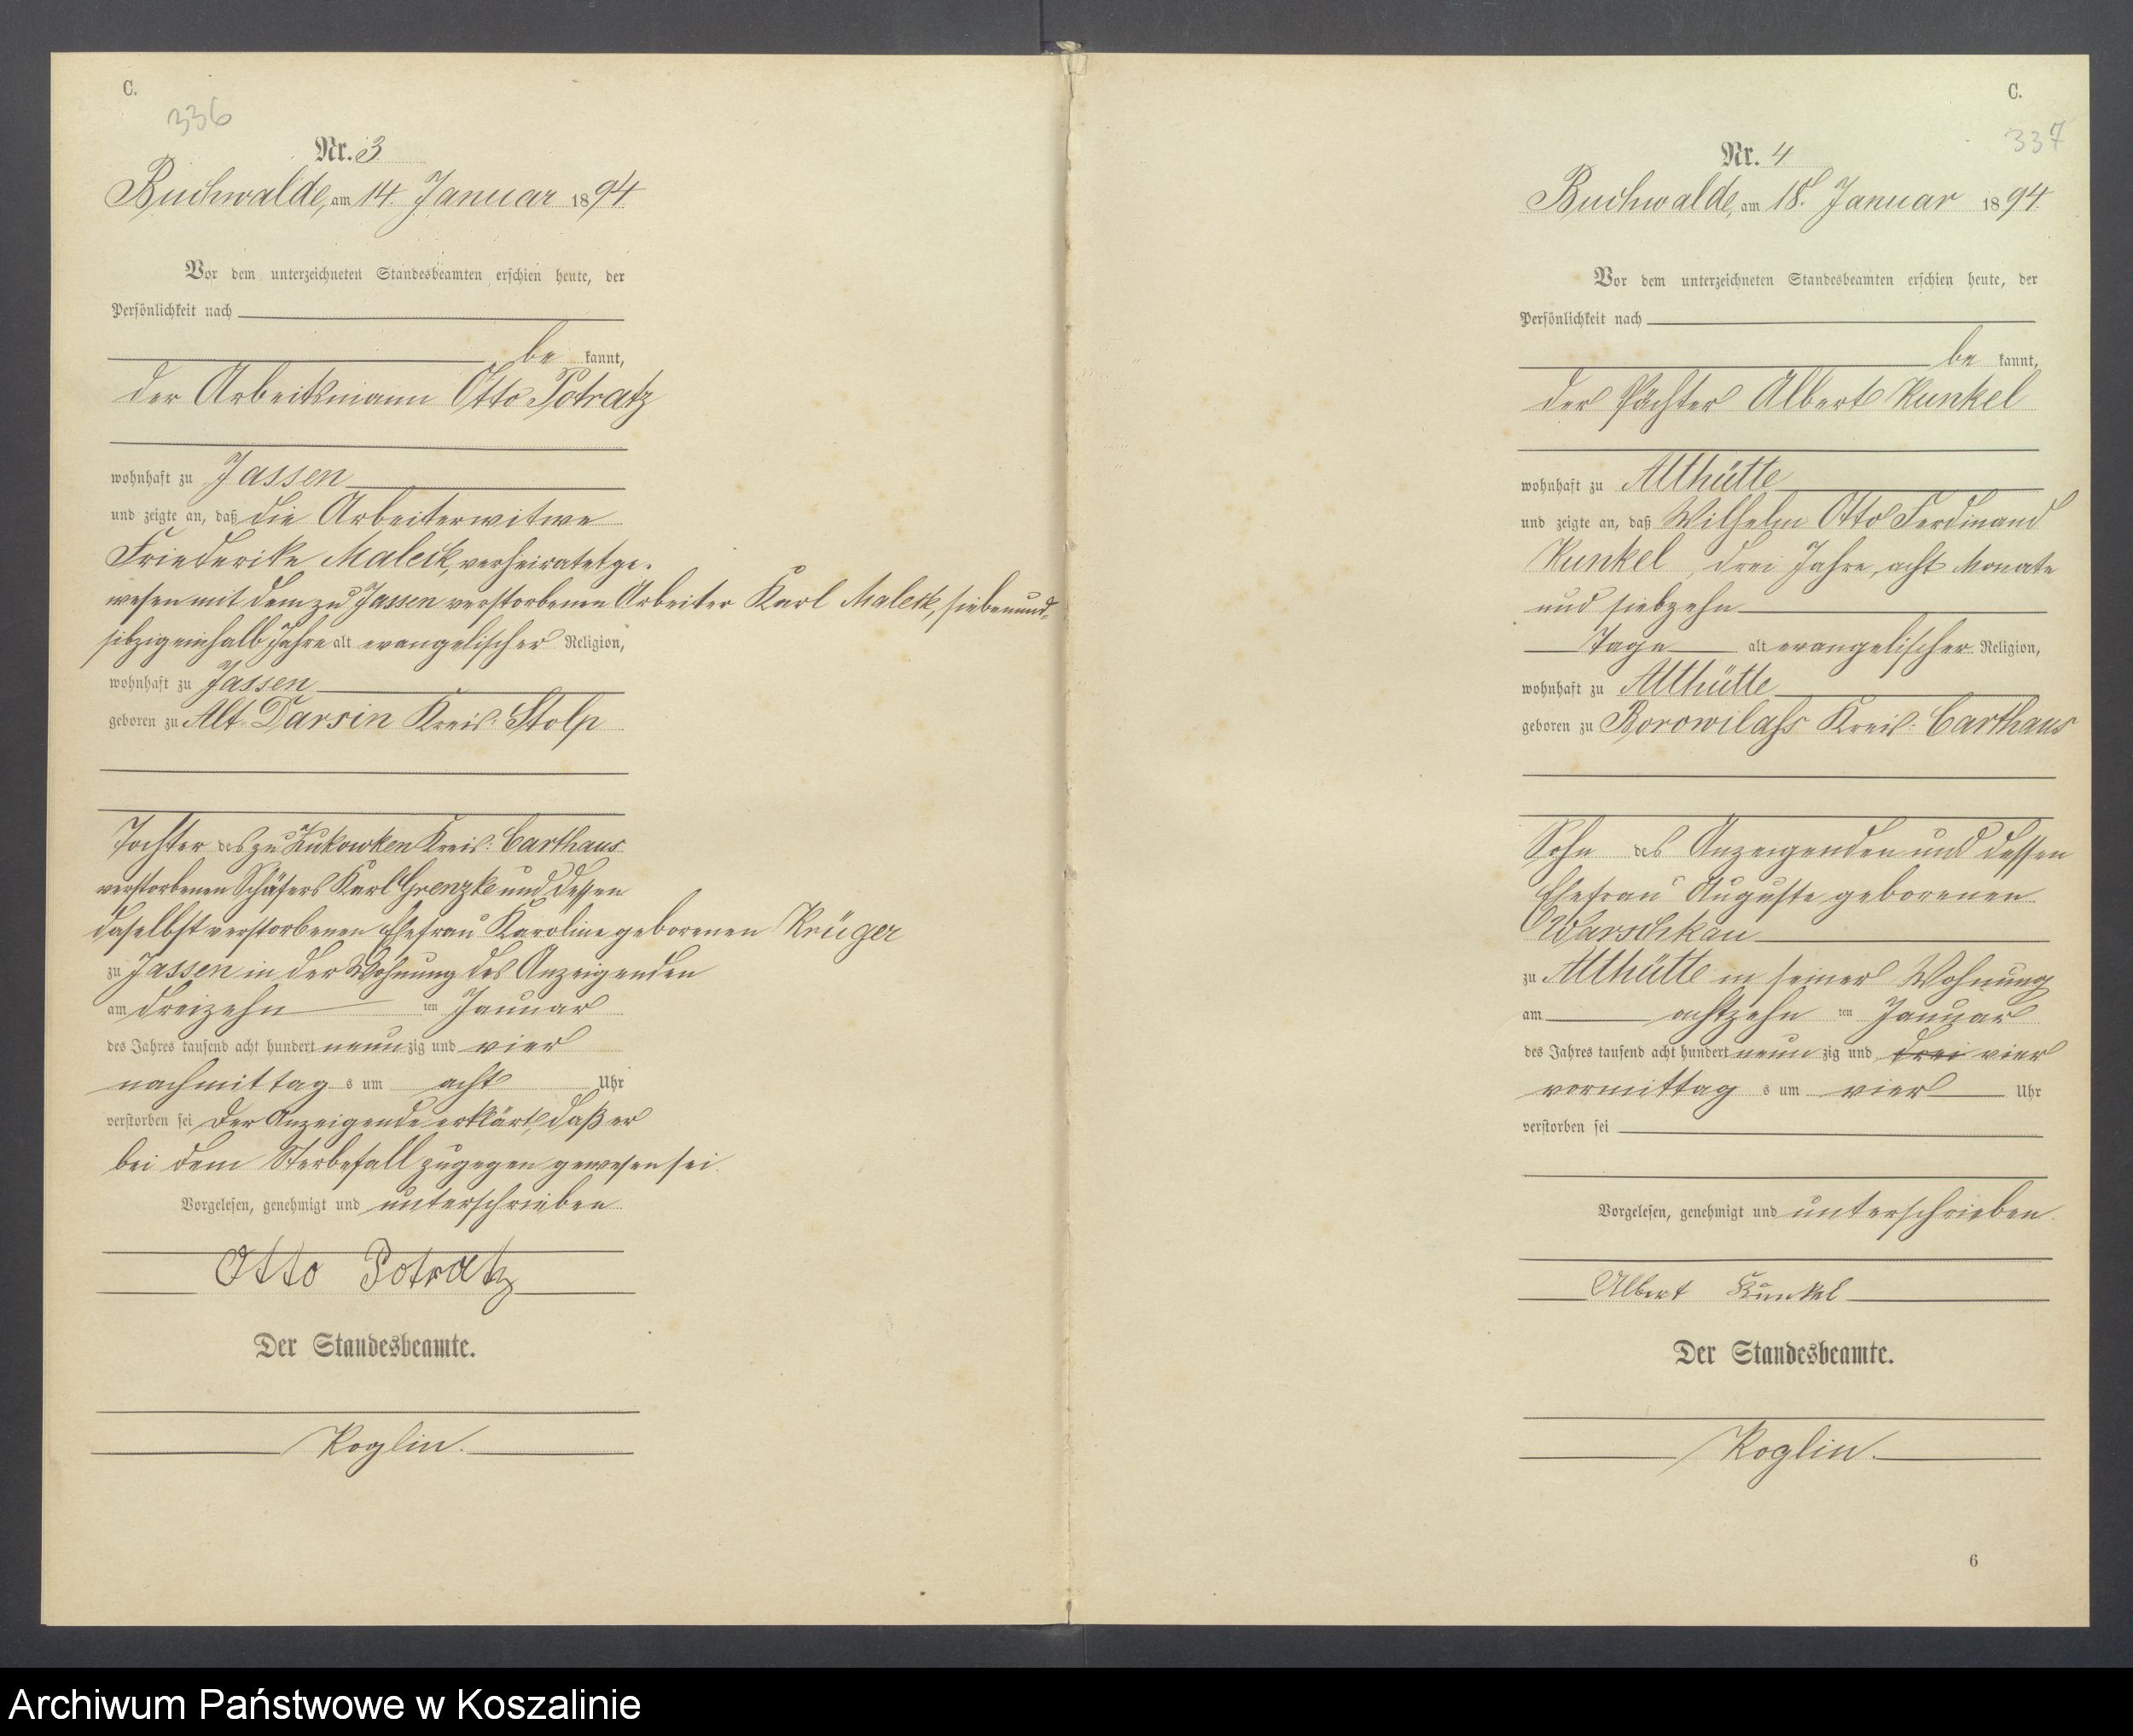 C.
336
Nr. 3
Buchwalde, am 14. Januar 1894
Vor dem unterzeichneten Standesbeamten erschien heute, der
Persönlichkeit nach
be kannt,
der Arbeitsmann Otto Potratz
wohnhaft zu Jassen
und zeigte an, daß die Arbeiterwitwe
Friederike Maleck, verheiratet ge-
wesen mit dem zu Jassen verstorbenen Arbeiter Karl Maleck, siebenund-
sibzigeinhalb Jahre alt evangelischer Religion,
wohnhaft zu Jassen
geboren zu Alt Darsin Kreis: Stolp
Tochter des zu Kukowken Kreis: Carthaus
verstorbenen Schäfers Karl Grenzke und dessen
daselbst verstorbenen Ehefrau Karoline geborenen Krüger
zu Jassen in der Wohnung des Anzeigenden
am dreizehn ten Januar
des Jahres tausend acht hundert neunzig und vier
nachmittag s um acht Uhr
verstorben sei Der Anzeigende erklärt, daß er
bei dem Sterbefall zugegen gewesen sei.
Vorgelesen, genehmigt und unterschrieben
Otto Potratz
Der Standesbeamte.
Koglin.
C.
337
Nr. 4
Buchwalde, am 18. Januar 1894
Vor dem unterzeichneten Standesbeamten erschien heute, der
Persönlichkeit nach
be kannt,
der Pächter Albert Kunkel
wohnhaft zu Althütte
und zeigte an, daß Wilhelm Otto Ferdinand
Kunkel, drei Jahre, acht Monate
und siebzehn
Tage alt evangelischer Religion,
wohnhaft zu Althütte
geboren zu Borowilaß Kreis: Carthaus
Sohn des Anzeigenden und dessen
Ehefrau Auguste geborenen
Warschkau
zu Althütte in seiner Wohnung
am achtzehn ten Januar
des Jahres tausend acht hundert neun zig und drei vier
vormittag s um vier Uhr
verstorben sei
Vorgelesen, genehmigt und unterschrieben.
Albert Kunkel
Der Standesbeamte.
Koglin.
6
Archiwum Państwowe w Koszalinie